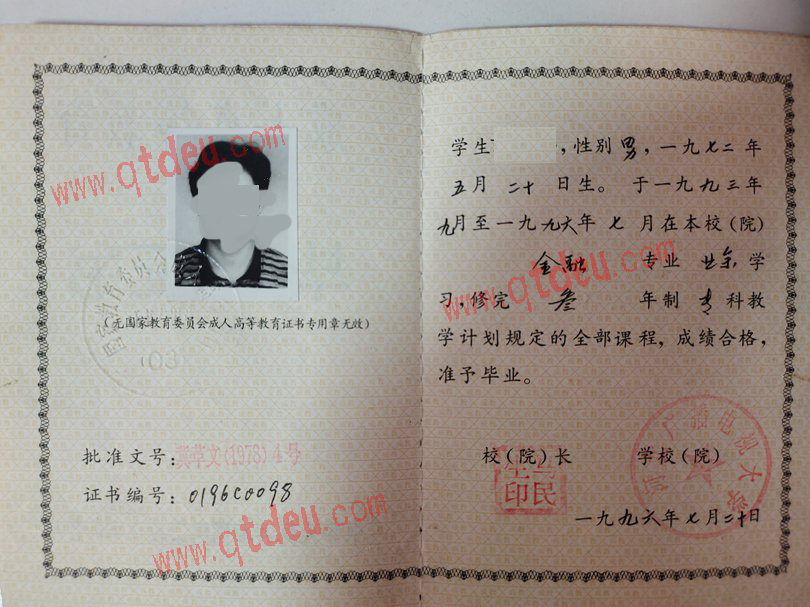 www.qtdeu.com
(无国家教育委员会成人高等教育证书专用章无效)
批准文号:冀革文(1978)4号
证书编号:0196C0098
www.qtdeu.com
学生 ,性别男,一九七二年
五月二十日生。于一九九三年
九月至一九九六年七月在本校(院)
www.qtdeu.com
金融 专业业余学
习,修完叁年制专科教
学计划规定的全部课程,成绩合格,
准予毕业。
校(院)长 学校(院)
印民
广播电视大学
一九九六年七月二十日